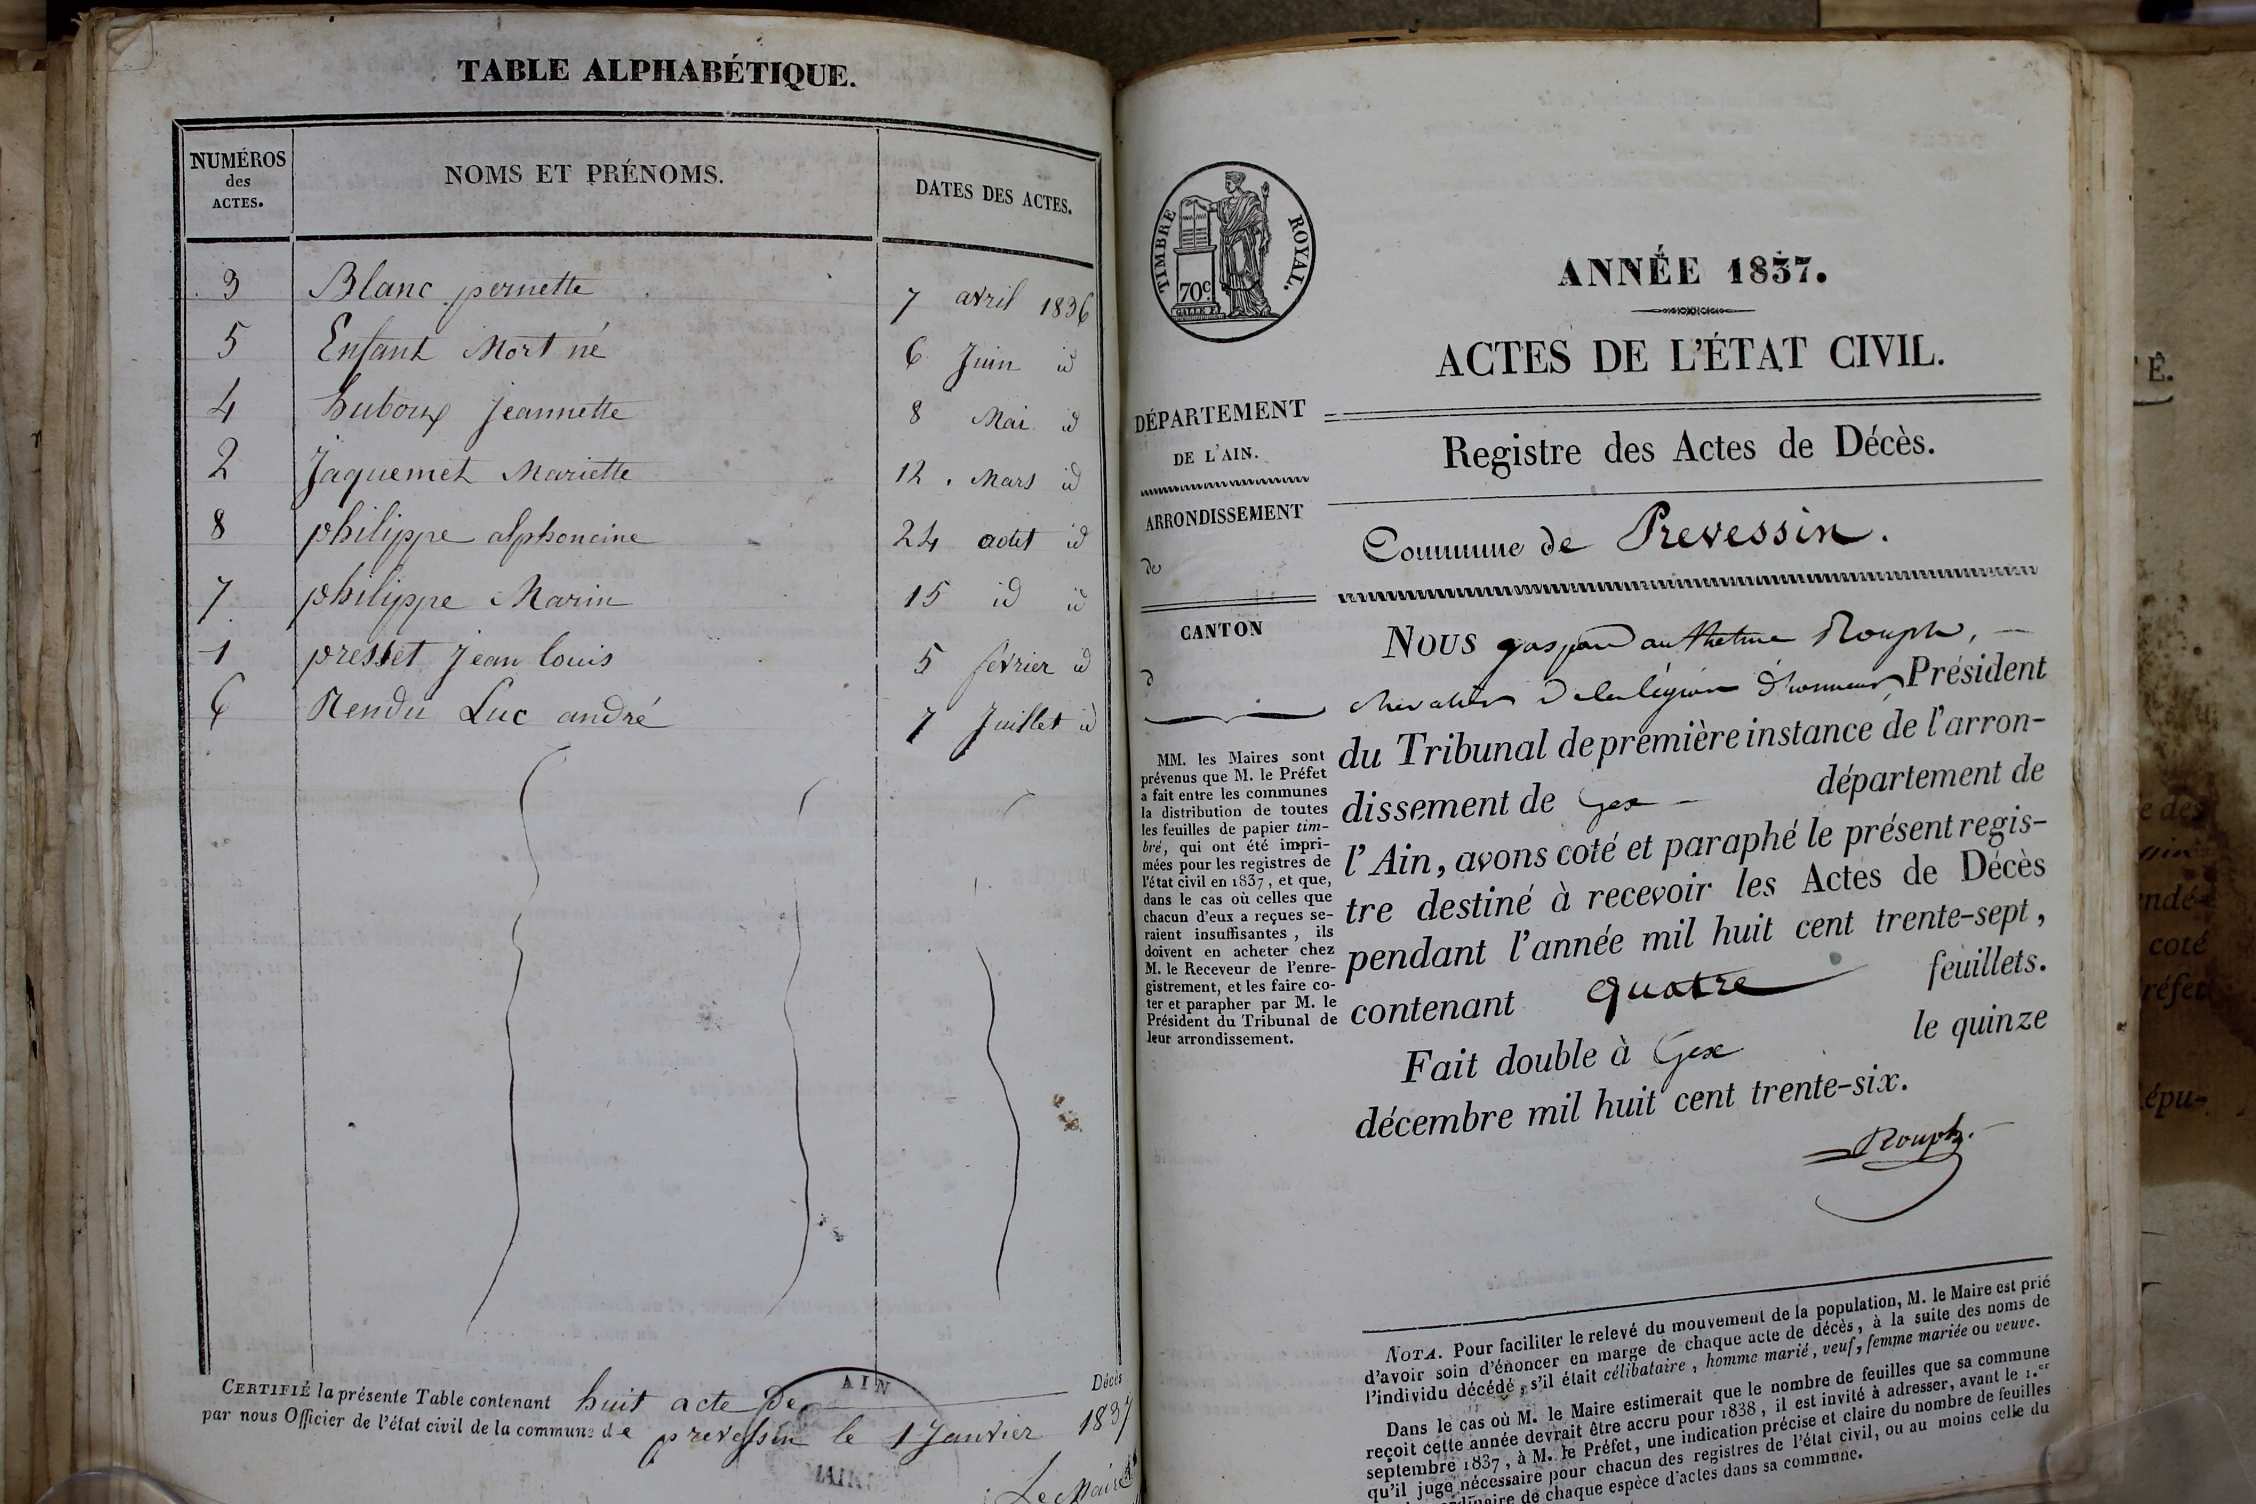 TABLE ALPHABÉTIQUE.
NUMÉROS des ACTES. NOMS ET PRÉNOMS. DATES DES ACTES.
3 Blanc pernette 7 avril 1836
5 Enfant Mort né 6 Juin id
4 huboux Jeannette 8 Mai id
2 Jaquemet Mariette 12 Mars id
8 philippe alphoncine 24 août id
7 philippe Marin 15 id id
1 presset Jean louis 5 fevrier id
6 Rendu Luc andré 7 Juillet id
CERTIFIÉ la présente Table contenant huit acte De Décès
par nous Officier de l'état civil de la commune de prevessin le 1 Janvier 1837
Le Maire
AIN
MAIRIE
TIMBRE ROYAL.
70c.
ANNÉE 1837.
ACTES DE L'ÉTAT CIVIL.
DÉPARTEMENT
DE L'AIN.
ARRONDISSEMENT
de
CANTON
d
MM. les Maires sont
prévenus que M. le Préfet
a fait entre les communes
la distribution de toutes
les feuilles de papier tim-
bré, qui ont été impri-
mées pour les registres de
l'état civil en 1837, et que,
dans le cas où celles que
chacun d'eux a reçues se-
raient insuffisantes, ils
doivent en acheter chez
M. le Receveur de l'enre-
gistrement, et les faire co-
ter et parapher par M. le
Président du Tribunal de
leur arrondissement.
Registre des Actes de Décès.
Commune de Prevessin.
NOUS gaspard anthelme Rouph,
chevalier de la légion d'honneur, Président
du Tribunal de première instance de l'arron-
dissement de Gex département de
l'Ain, avons coté et paraphé le présent regis-
tre destiné à recevoir les Actes de Décès
pendant l'année mil huit cent trente-sept,
contenant quatre feuillets.
Fait double à Gex le quinze
décembre mil huit cent trente-six.
Rouph.
NOTA. Pour faciliter le relevé du mouvement de la population, M. le Maire est prié
d'avoir soin d'énoncer en marge de chaque acte de décès, à la suite des noms de
l'individu décédé, s'il était célibataire, homme marié, veuf, femme mariée ou veuve.
Dans le cas où M. le Maire estimerait que le nombre de feuilles que sa commune
reçoit cette année devrait être accru pour 1838, il est invité à adresser, avant le 1.er
septembre 1837, à M. le Préfet, une indication précise et claire du nombre de feuilles
qu'il juge nécessaire pour chacun des registres de l'état civil, ou au moins celle du
de chaque espèce d'actes dans sa commune.